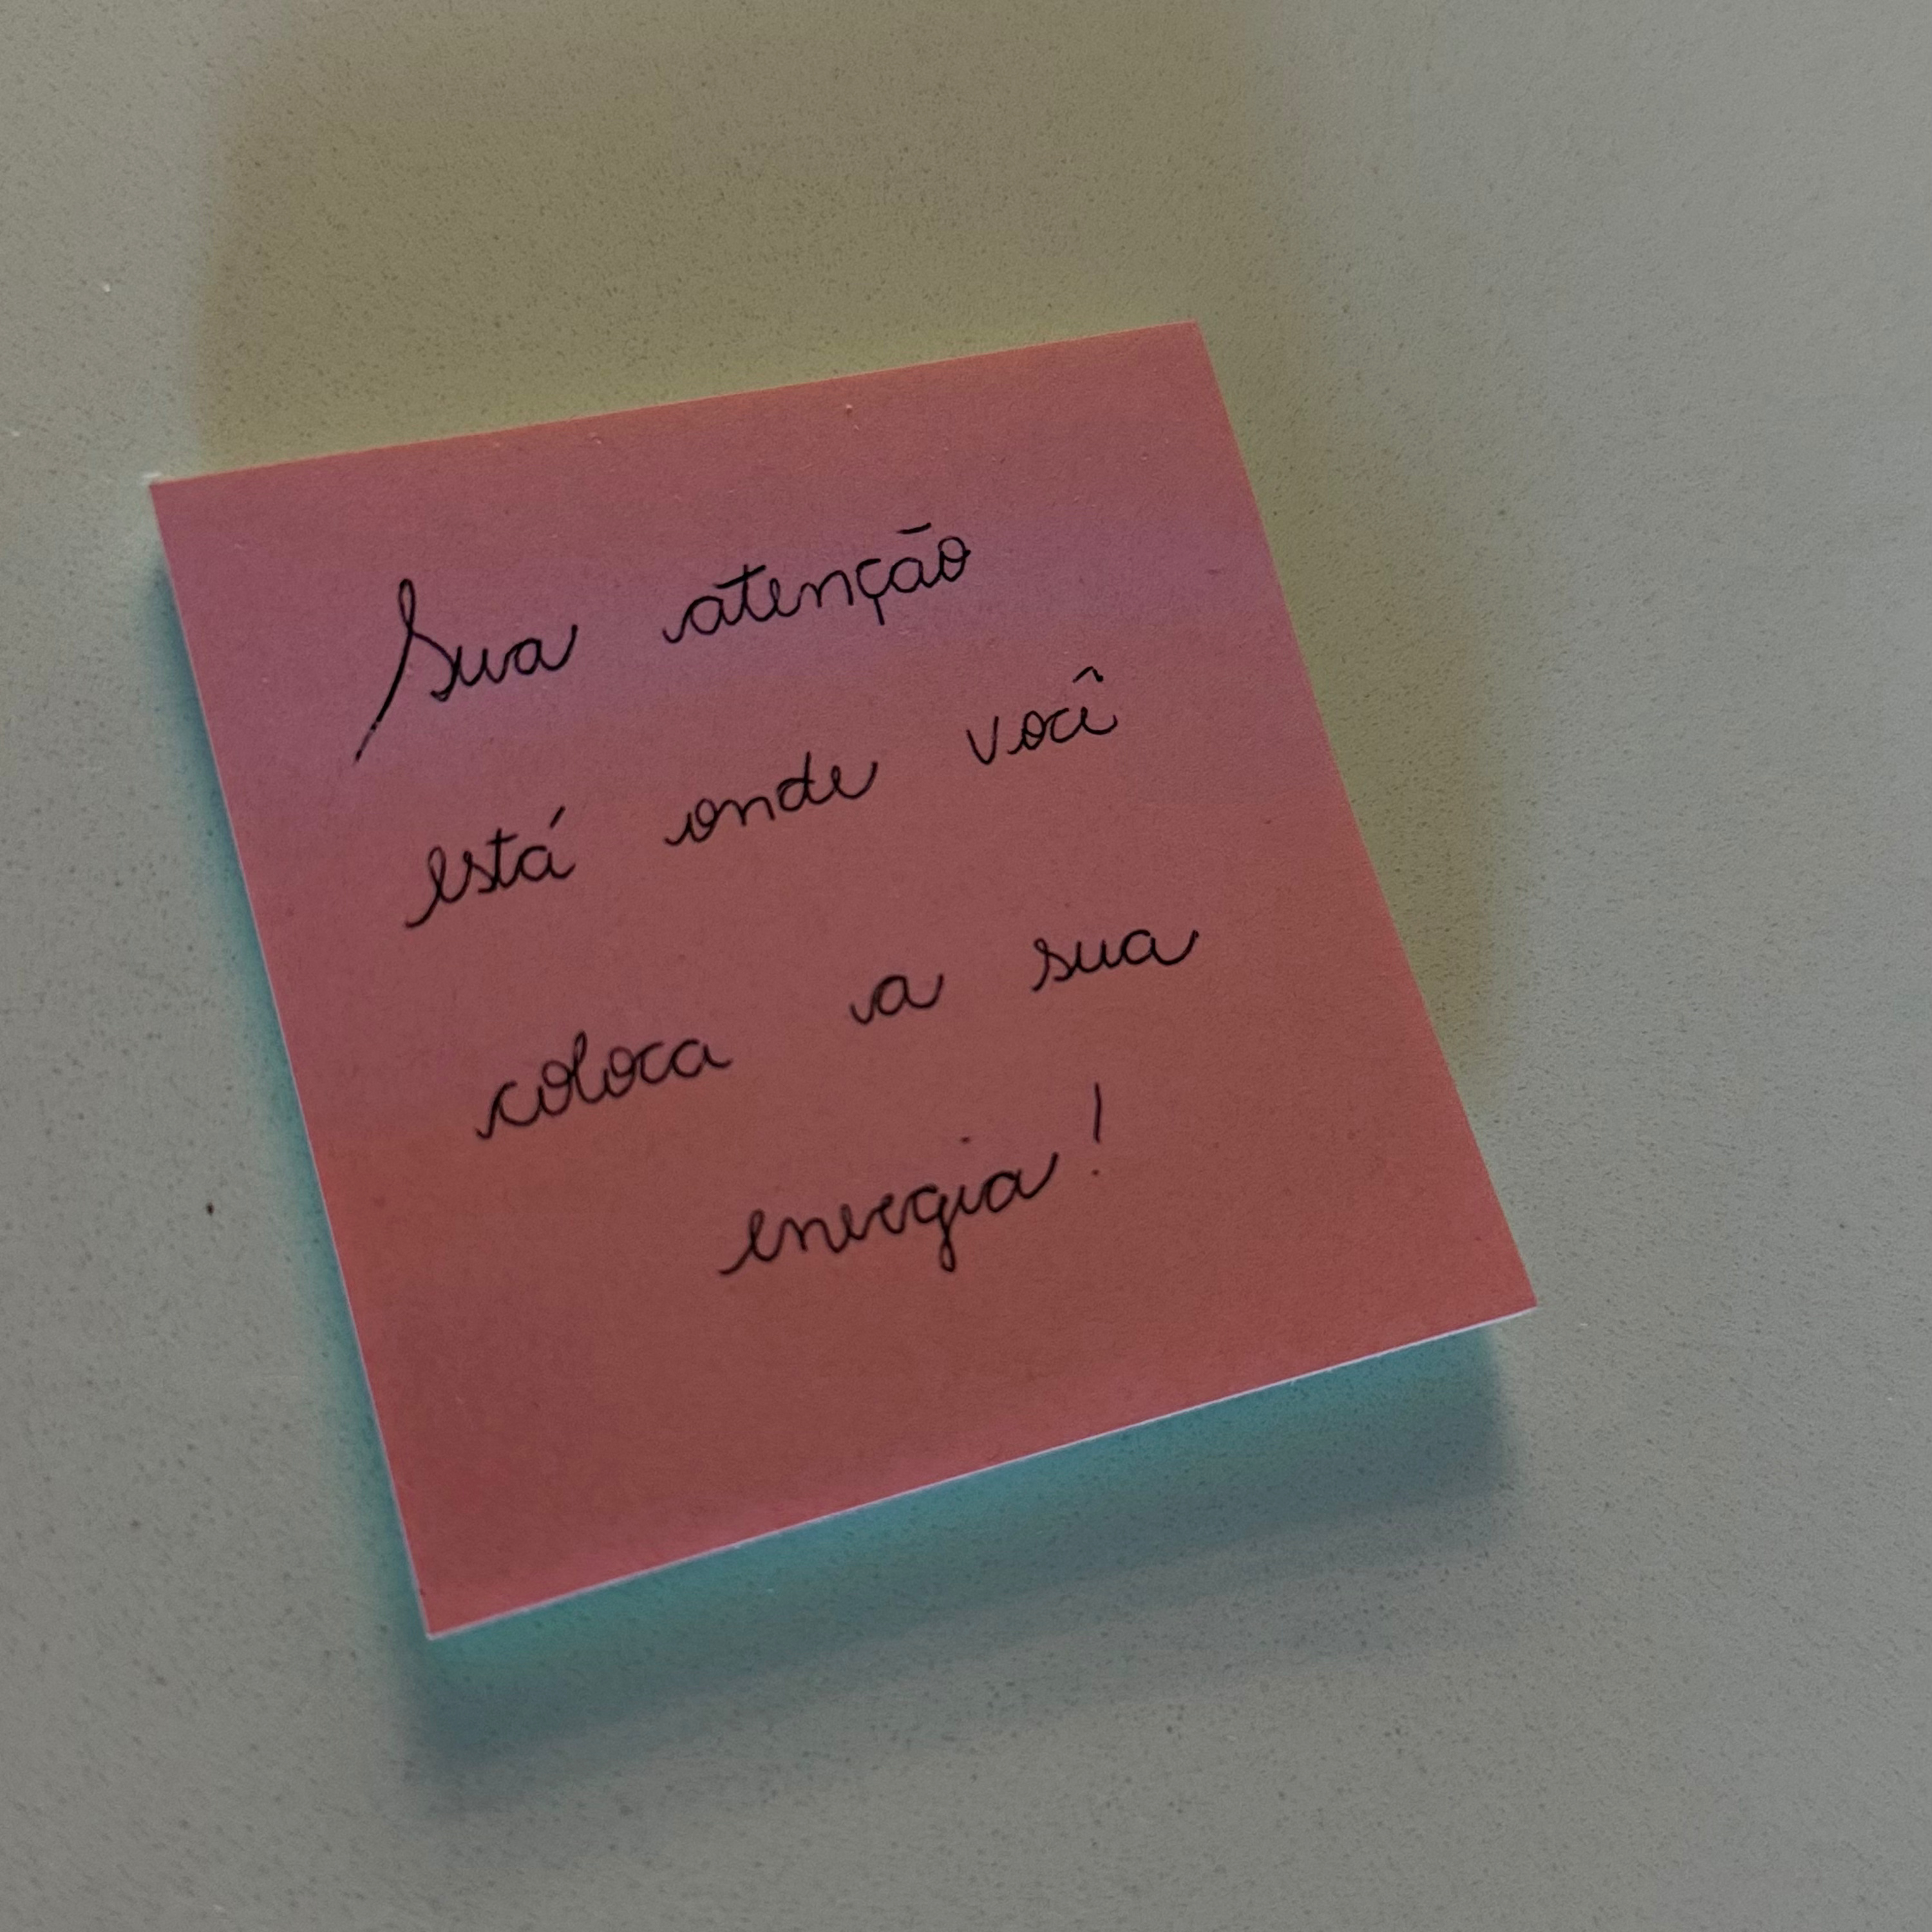 Sua atenção
está onde você
coloca a sua
energia!